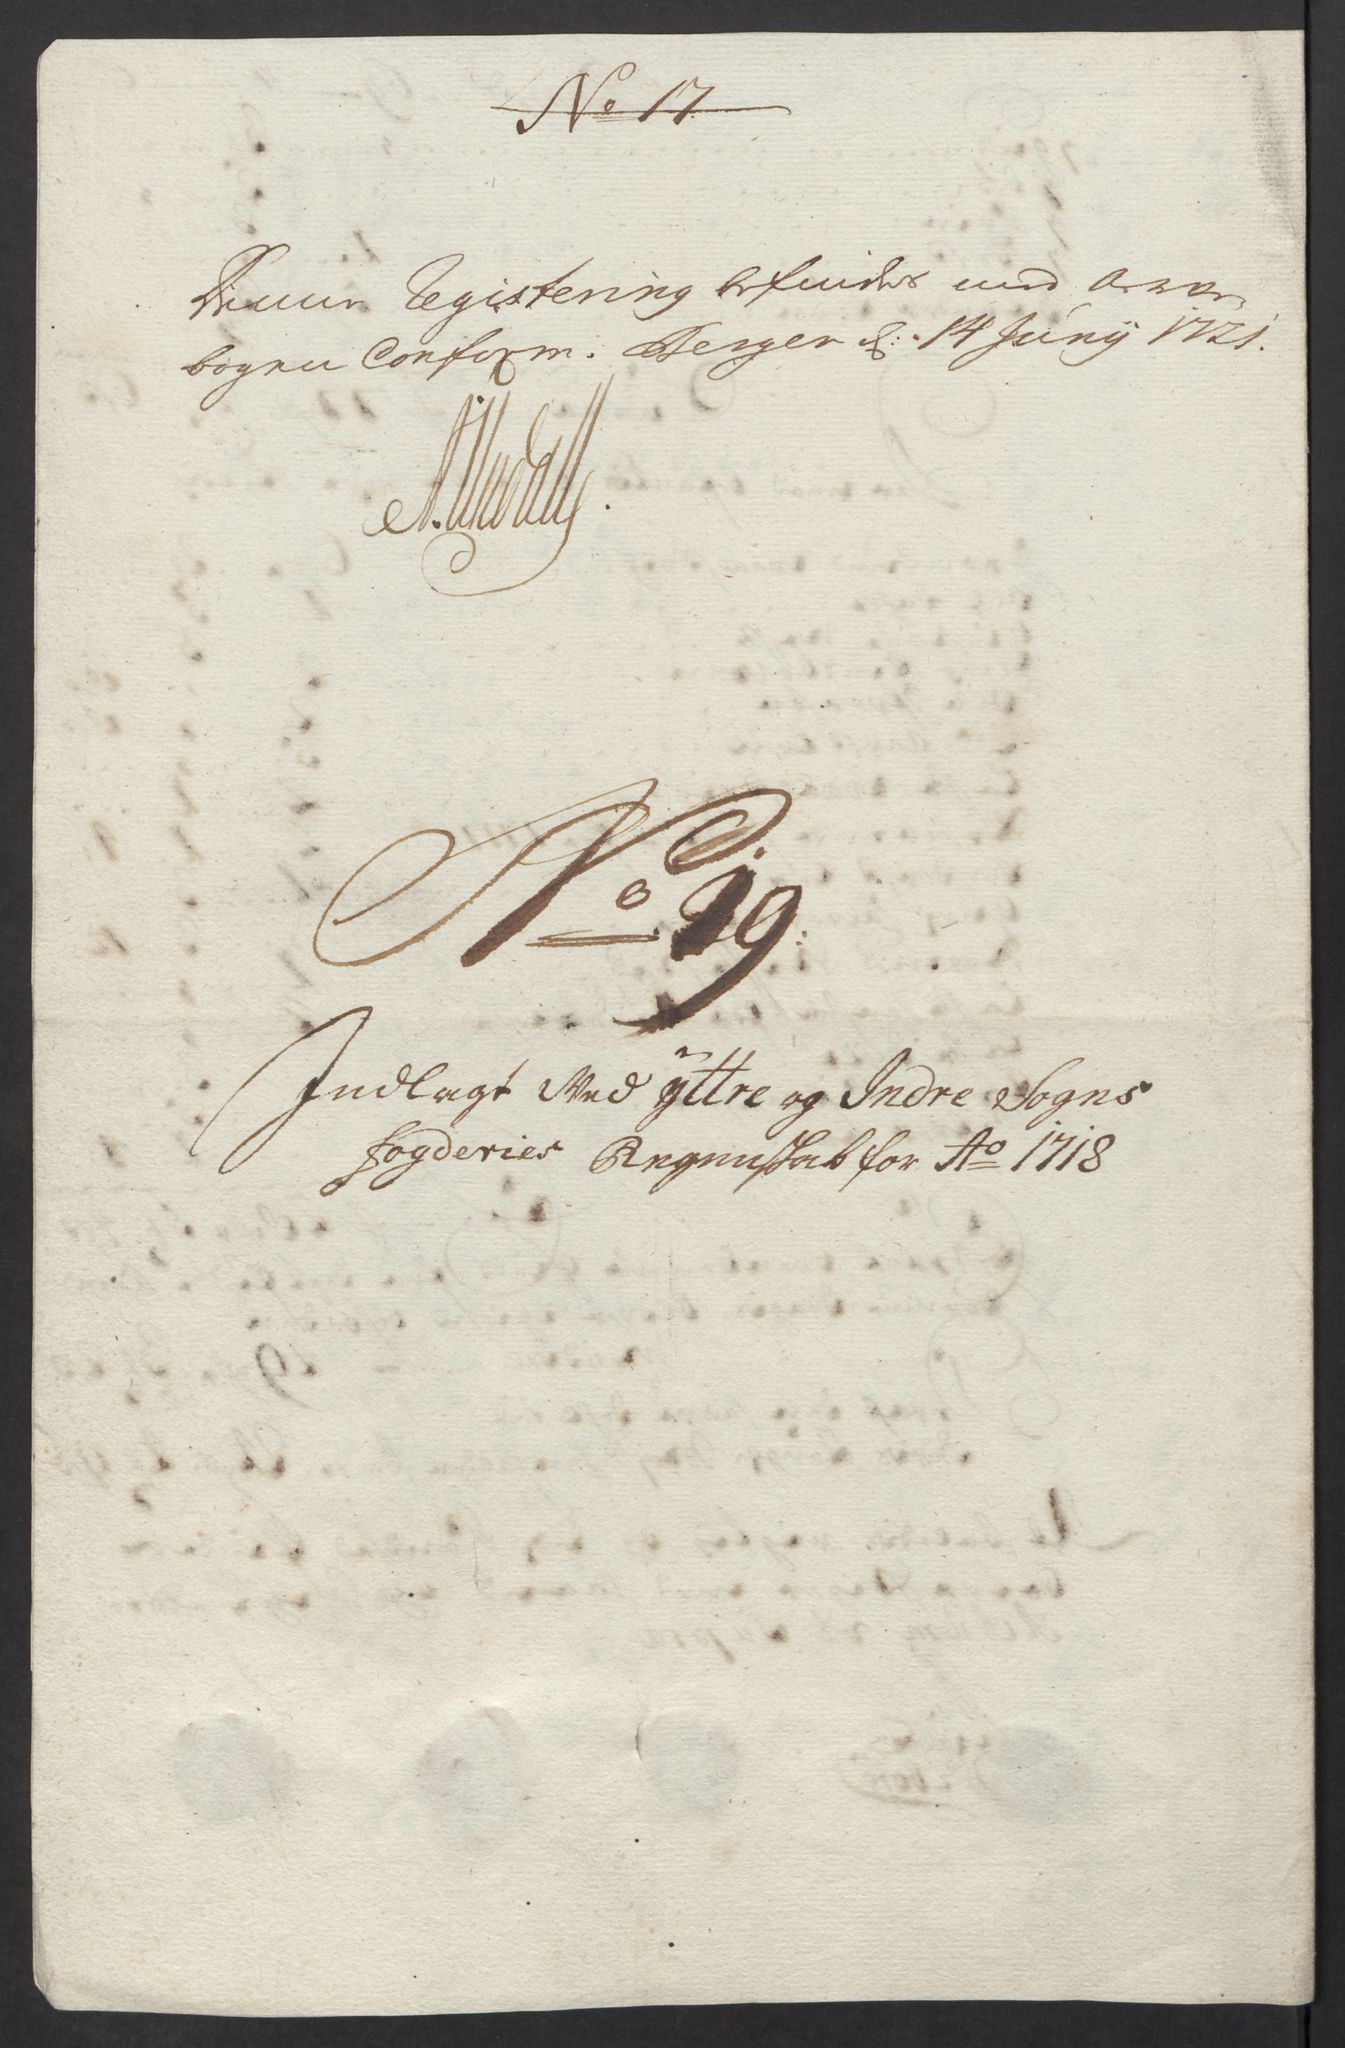 No 17
Denne Registering befindes med
bogen Conform. Bergen d: 14 Junij 1721.
No 19:
Indlagt Ved ÿttre og Indre Sogns
fogderies Regenskab for Ao 1718